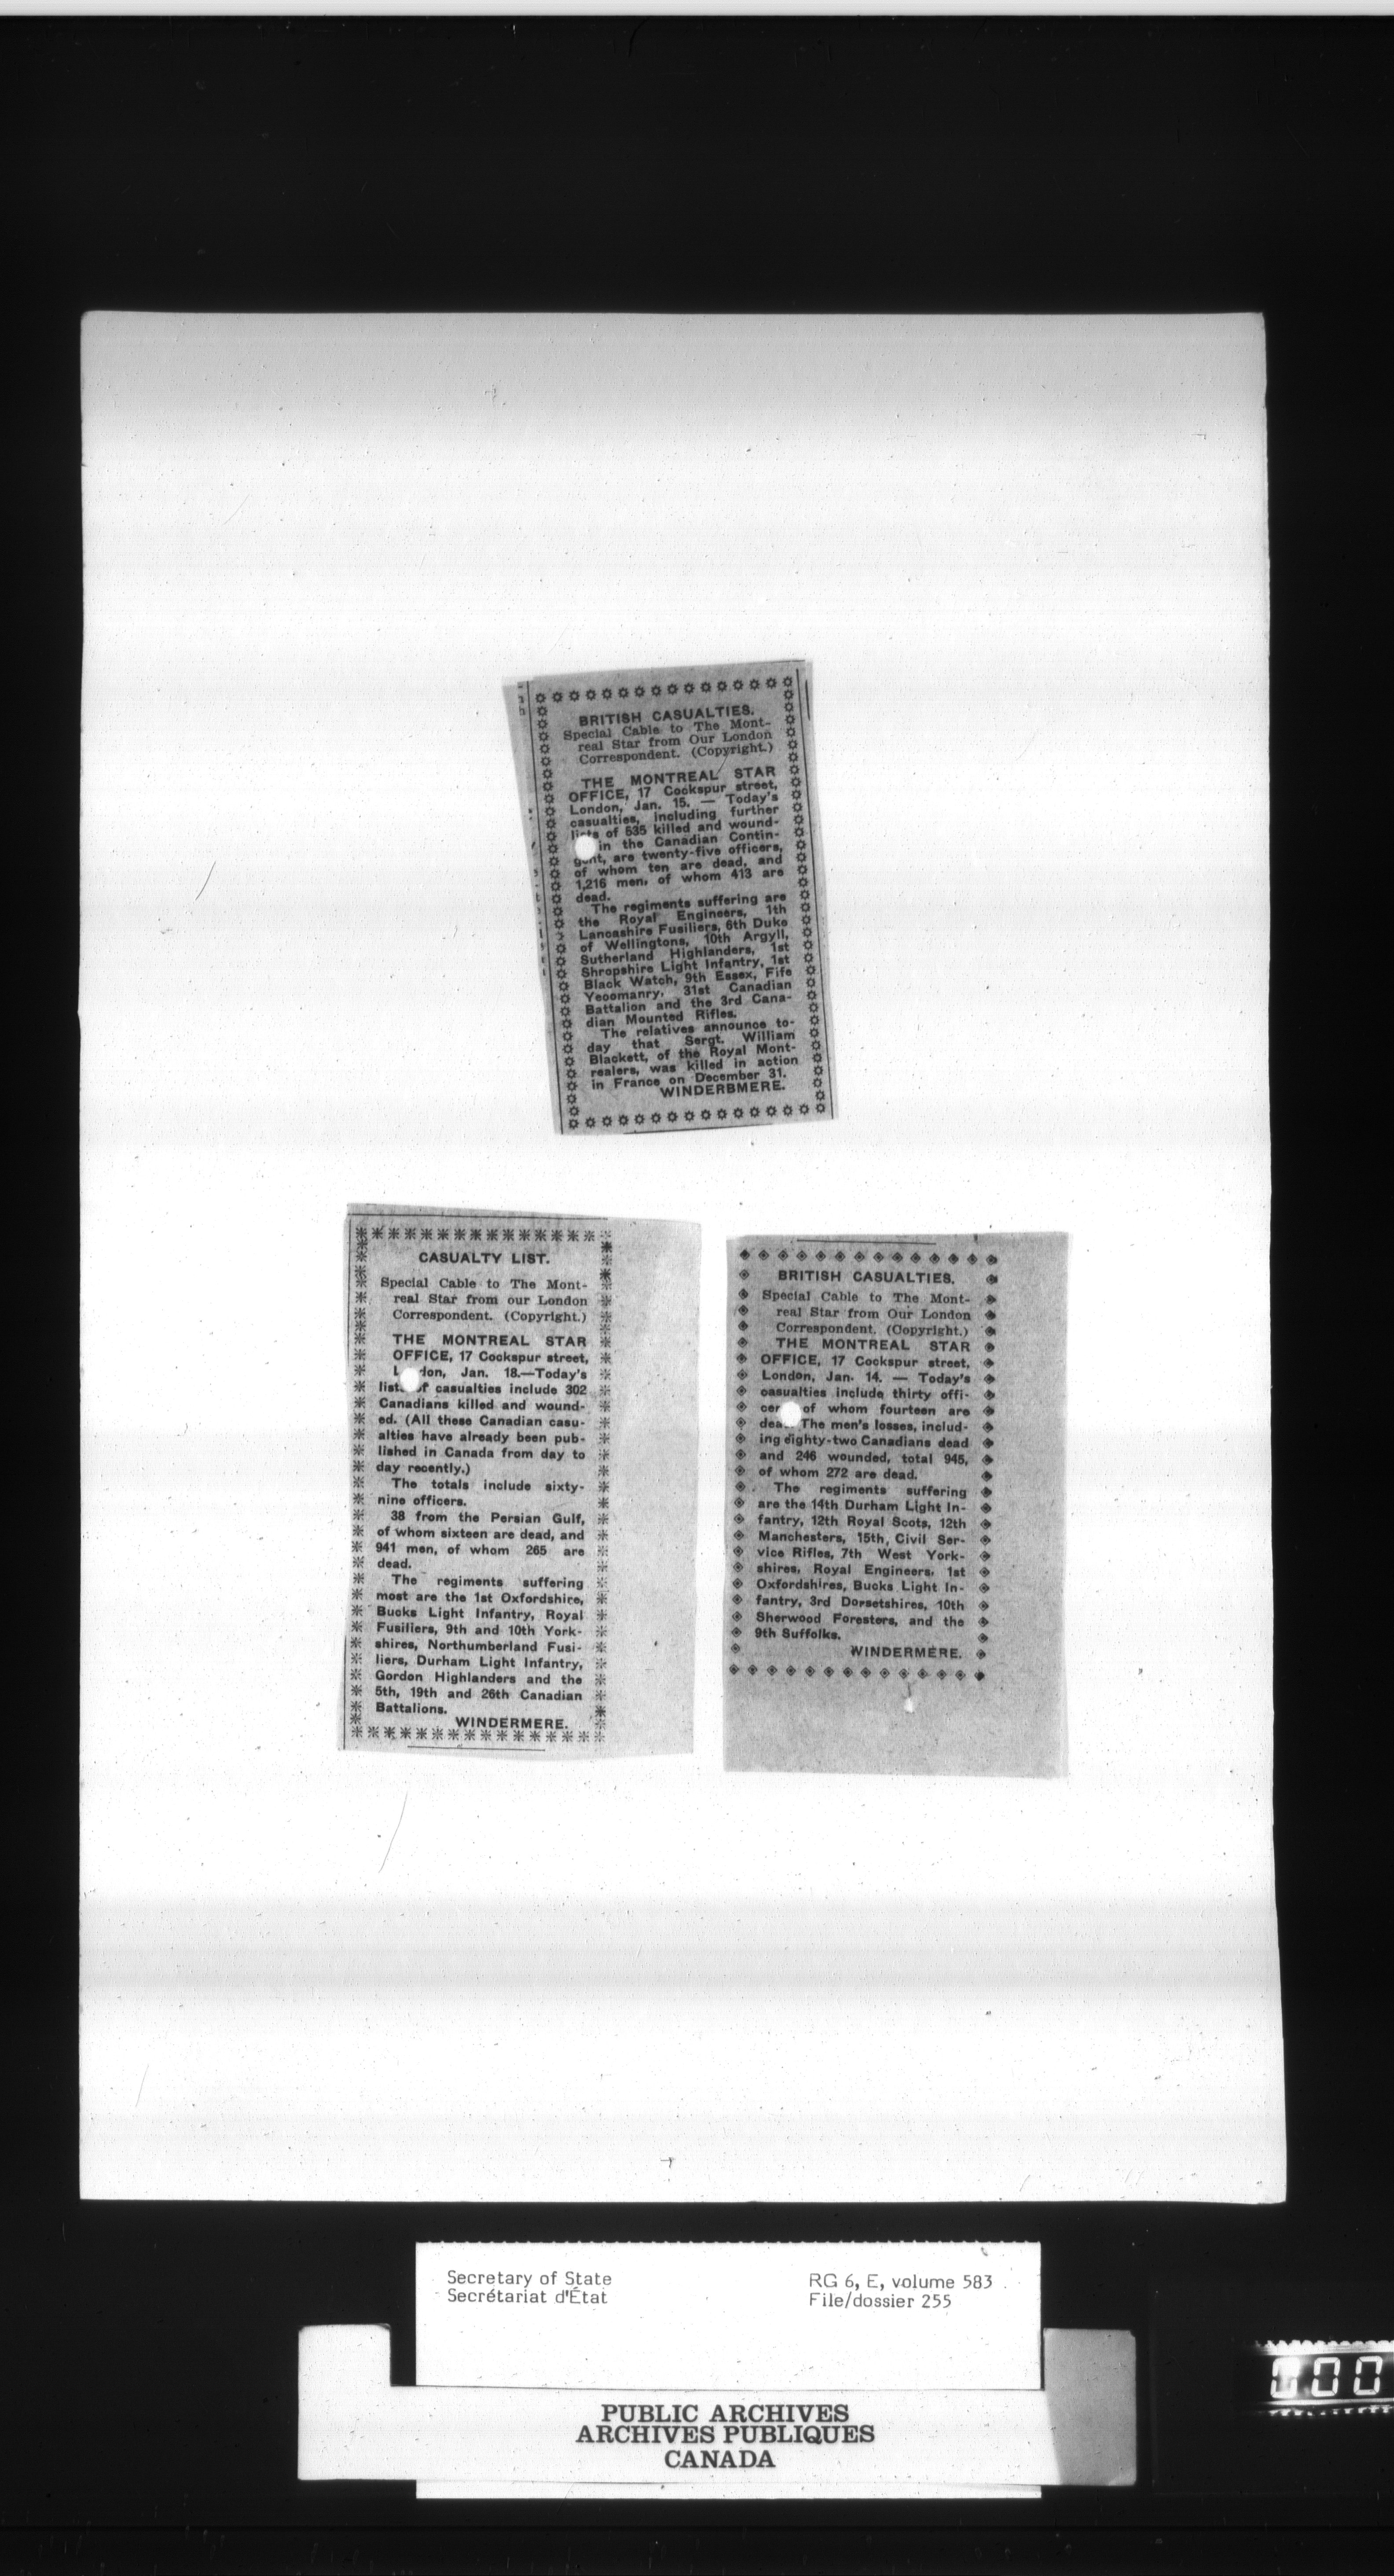 BRITISH CASUALTIES.
Special Cable to The Mont-
real Star from Our London
Correspondent. (Copyright.)
THE MONTREAL STAR
OFFICE, 17 Cockspur street,
London, Jan. 15. — Today's
casualties, including further
lists of 535 killed and wound-
in the Canadian Contin-
gent, are twenty-five officers,
of whom ten are dead, and
1,216 men, of whom 413 are
dead.
The regiments suffering are
the Royal Engineers, 1th
Lancashire Fusiliers, 6th Duke
of Wellingtons, 10th Argyll,
Sutherland Highlanders, 1st
Shropshire Light Infantry, 1st
Black Watch, 9th Essex, Fife
Yeoomanry, 31st Canadian
Battalion and the 3rd Cana-
dian Mounted Rifles.
The relatives announce to-
day that Sergt. William
Blackett, of the Royal Mont-
realers, was killed in action
in France on December 31.
WINDERBMERE.
CASUALTY LIST.
Special Cable to The Mont-
real Star from our London
Correspondent. (Copyright.)
THE MONTREAL STAR
OFFICE, 17 Cockspur street,
London, Jan. 18.—Today's
lists of casualties include 302
Canadians killed and wound-
ed. (All these Canadian casu-
alties have already been pub-
lished in Canada from day to
day recently.)
The totals include sixty-
nine officers.
38 from the Persian Gulf,
of whom sixteen are dead, and
941 men, of whom 265 are
dead.
The regiments suffering
most are the 1st Oxfordshire,
Bucks Light Infantry, Royal
Fusiliers, 9th and 10th York-
shires, Northumberland Fusi-
liers, Durham Light Infantry,
Gordon Highlanders and the
5th, 19th and 26th Canadian
Battalions.
WINDERMERE.
BRITISH CASUALTIES.
Special Cable to The Mont-
real Star from Our London
Correspondent. (Copyright.)
THE MONTREAL STAR
OFFICE, 17 Cockspur street,
London, Jan. 14. — Today's
casualties include thirty offi-
cers of whom fourteen are
dead. The men's losses, includ-
ing eighty-two Canadians dead
and 246 wounded, total 945,
of whom 272 are dead.
The regiments suffering
are the 14th Durham Light In-
fantry, 12th Royal Scots, 12th
Manchesters, 15th, Civil Ser-
vice Rifles, 7th West York-
shires, Royal Engineers, 1st
Oxfordshires, Bucks Light In-
fantry, 3rd Dorsetshires, 10th
Sherwood Foresters, and the
9th Suffolks.
WINDERMERE.
Secretary of State
Secrétariat d'État
RG 6, E, volume 583
File/dossier 255
PUBLIC ARCHIVES
ARCHIVES PUBLIQUES
CANADA
000